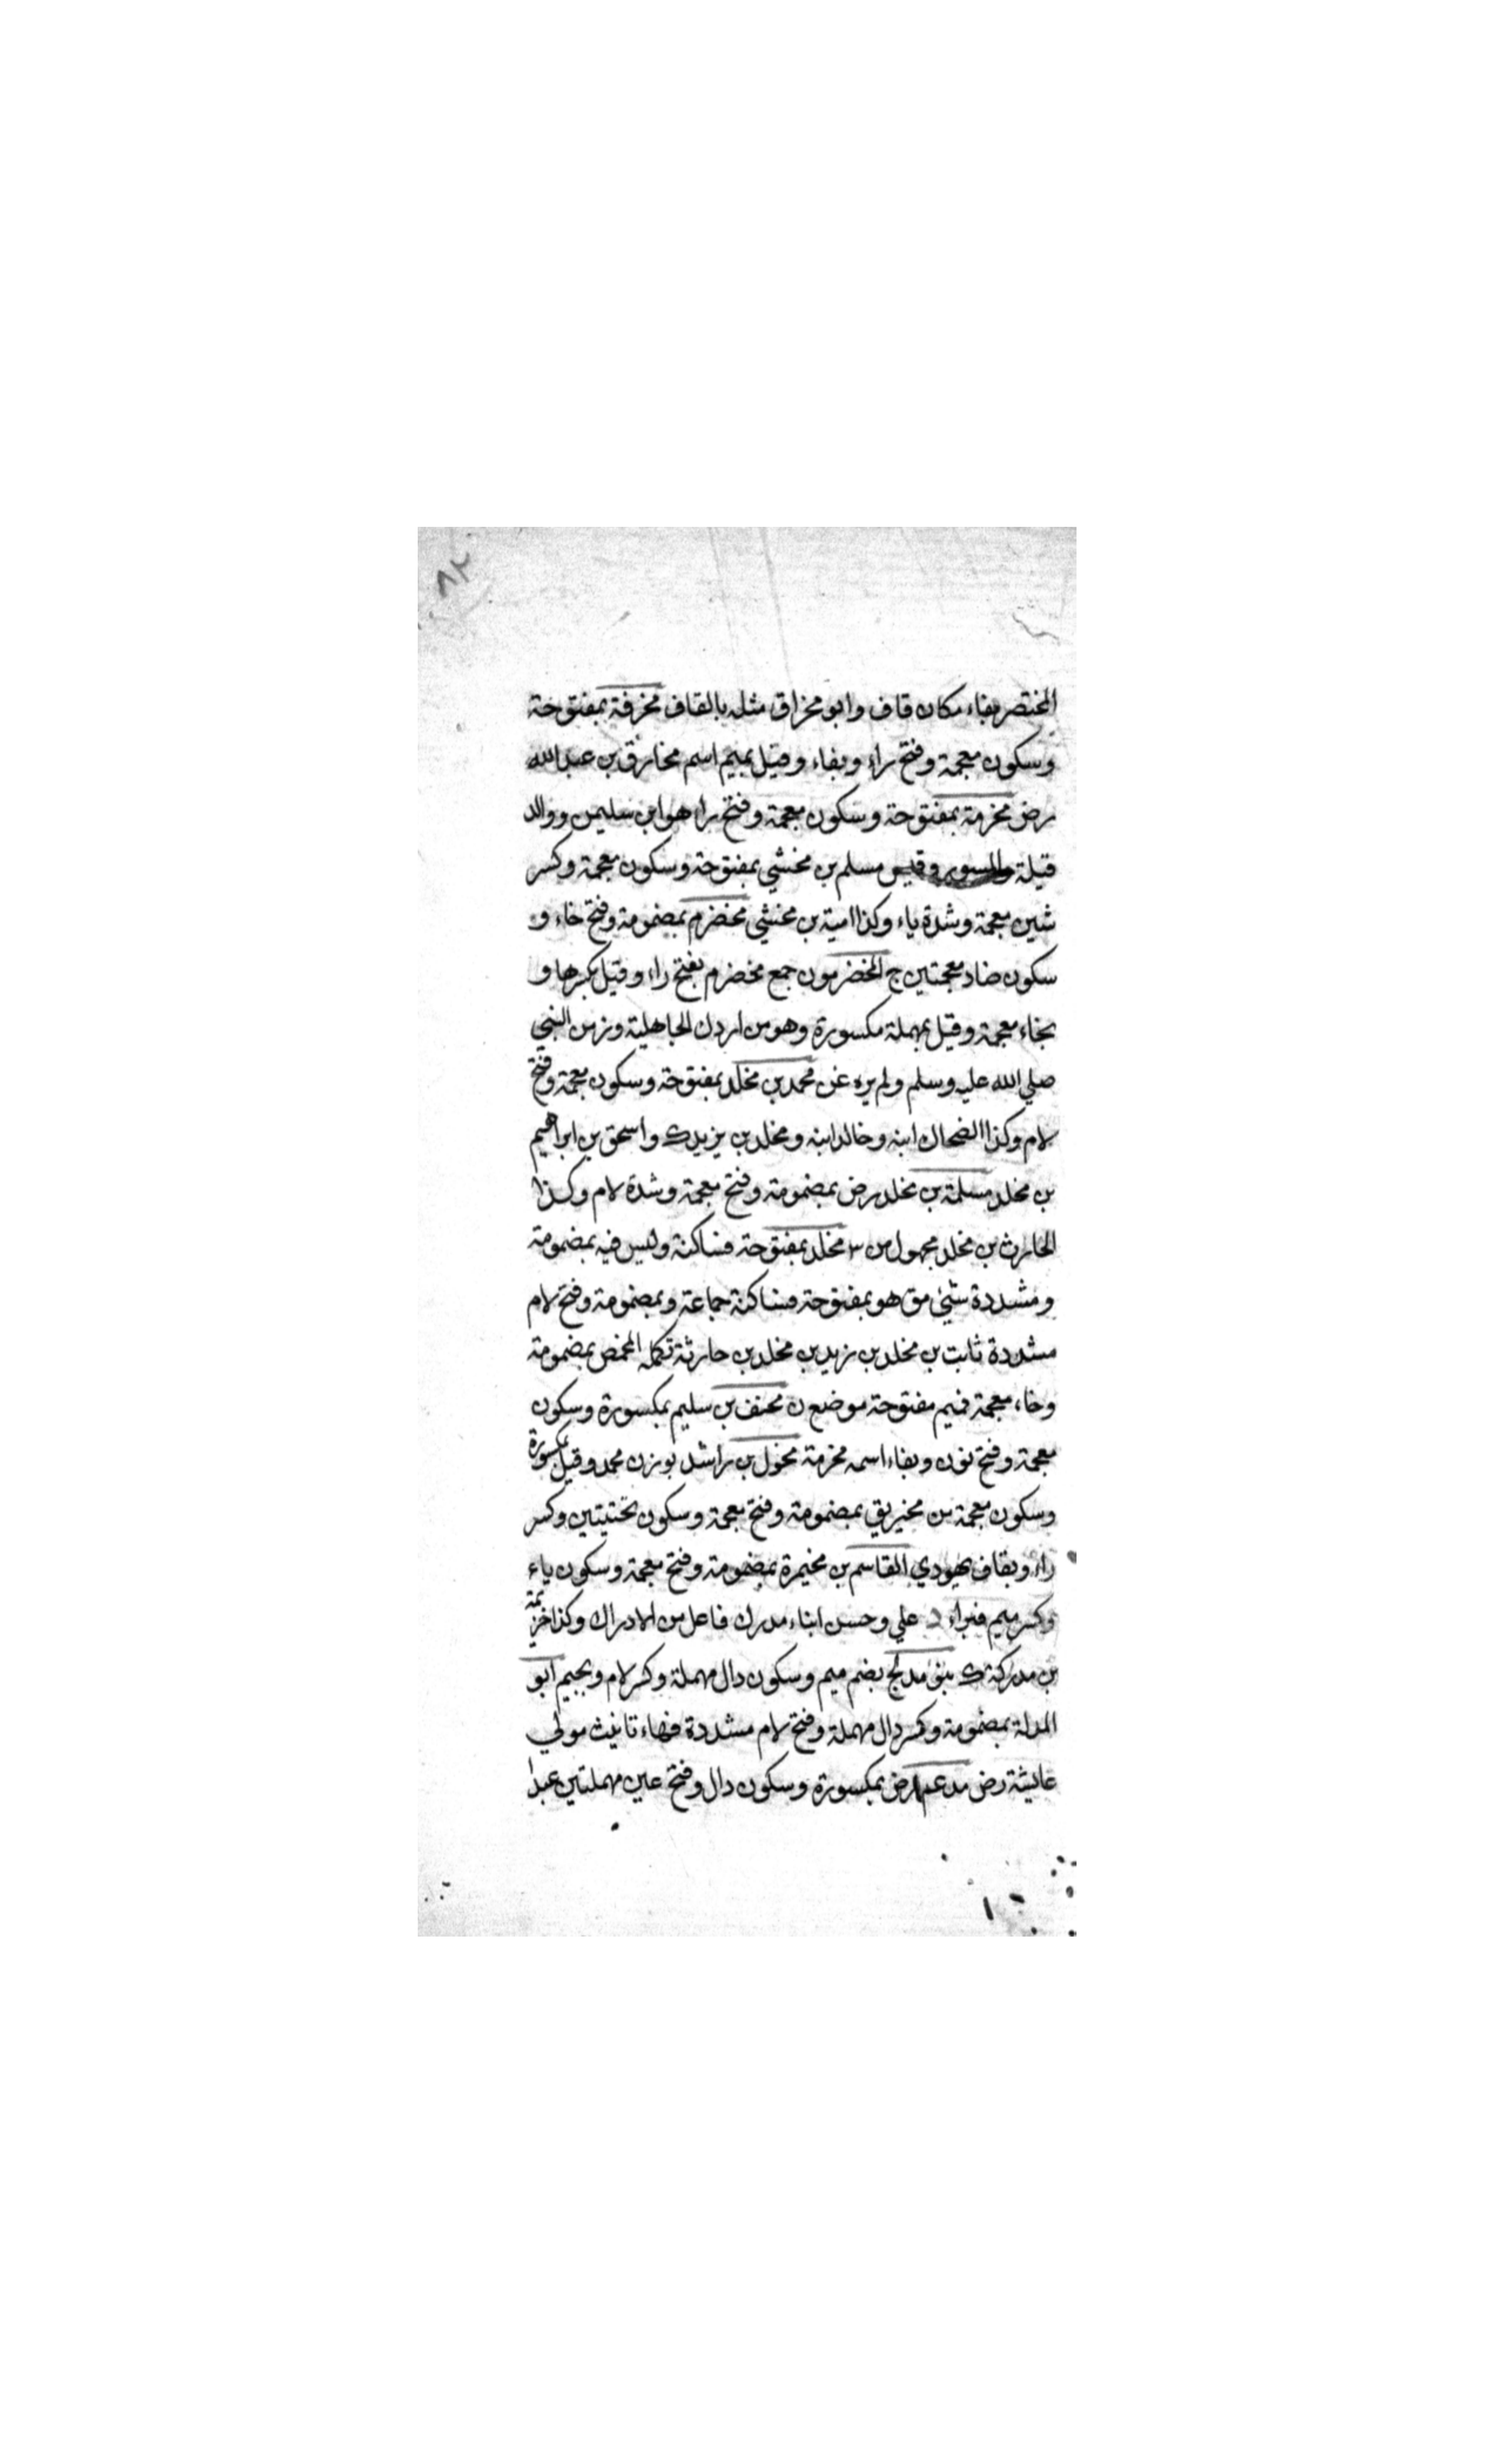 ٨٢
المختصر بفاء مكان قاف وابو مخراق مثله بالقاف مخرفة بمفتوحة
وسكون معجمة وفتح راء وبفاء وقيل بميم اسم مخارق بن عبد الله
رض مخرمة بمفتوحة وسكون معجمة وفتح راء هو ابن سليمن ووالد
قيلة والمسور وقيس مسلم بن مخشي بمفتوحة وسكون معجمة وكسر
شين معجمة وشدة ياء وكذا امية بن مخشي مخضرم بمضمومة وفتح خاء و
سكون ضاد معجمتين ج المخضرمون جمع مخضرم بفتح راء وقيل بكسرها و
بخاء معجمة وقيل بمهملة مكسورة وهو من ادرك الجاهلية وزمن النبي
صلي الله عليه وسلم ولم يره غن محمد بن مخلد بمفتوحة وسكون معجمة وفتح
لام وكذا الضحاك ابنه وخالد ابنه ومخلد بن يزيد ك واسحق بن ابراهيم
بن مخلد مسلمة بن مخلد رض بمضمومة وفتح معجمة وشدة لام وكذا
الحارث بن مخلد مجهول من ٣ مخلد بمفتوحة فساكنة وليس فيه بمضمومة
ومشددة شيئ مق هو بمفتوحة فساكنة جماعة وبمضمومة وفتح لام
مشددة ثابت بن مخلد بن زيد بن مخلد بن حارثة تكمله المخمص بمضمومة
وخاء معجمة فميم مفتوحة موضع ن مخنف بن سليم بمكسورة وسكون
معجمة وفتح نون وبفاء اسمه مخرمة مخول بن راشد بوزن محمد وقيل بمكسورة
وسكون معجمة من مخيريق بمضمومة وفتح معجمة وسكون تحتيتين وكسر
راء وبقاف يهودي القاسم بن مخيمرة بمضمومة وفتح معجمة وسكون ياء
وكسر ميم فبراء د علي وحسن ابناء مدرك فاعل من الادراك وكذا خزيمة
بن مدركة ك بنو مدلج بضم ميم وسكون دال مهملة وكسر لام وبجيم ابو
المدلة بمضمومة وكسر دال مهملة وفتح لام مشددة فهاء تانيث مولي
عايشة رض مدعم رض بمكسورة وسكون دال وفتح عين مهملتين عبدا